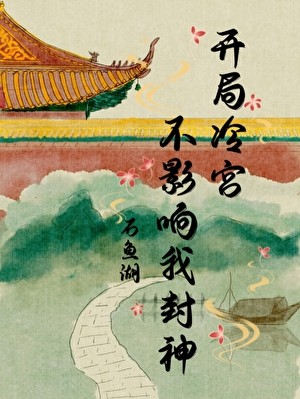 开局冷宫
不影响我封神
石鱼湖